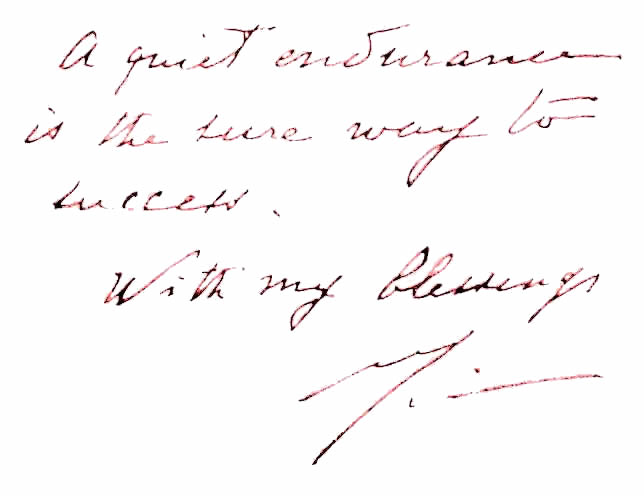 A quiet endurance
is the sure way to
success.
With my blessings